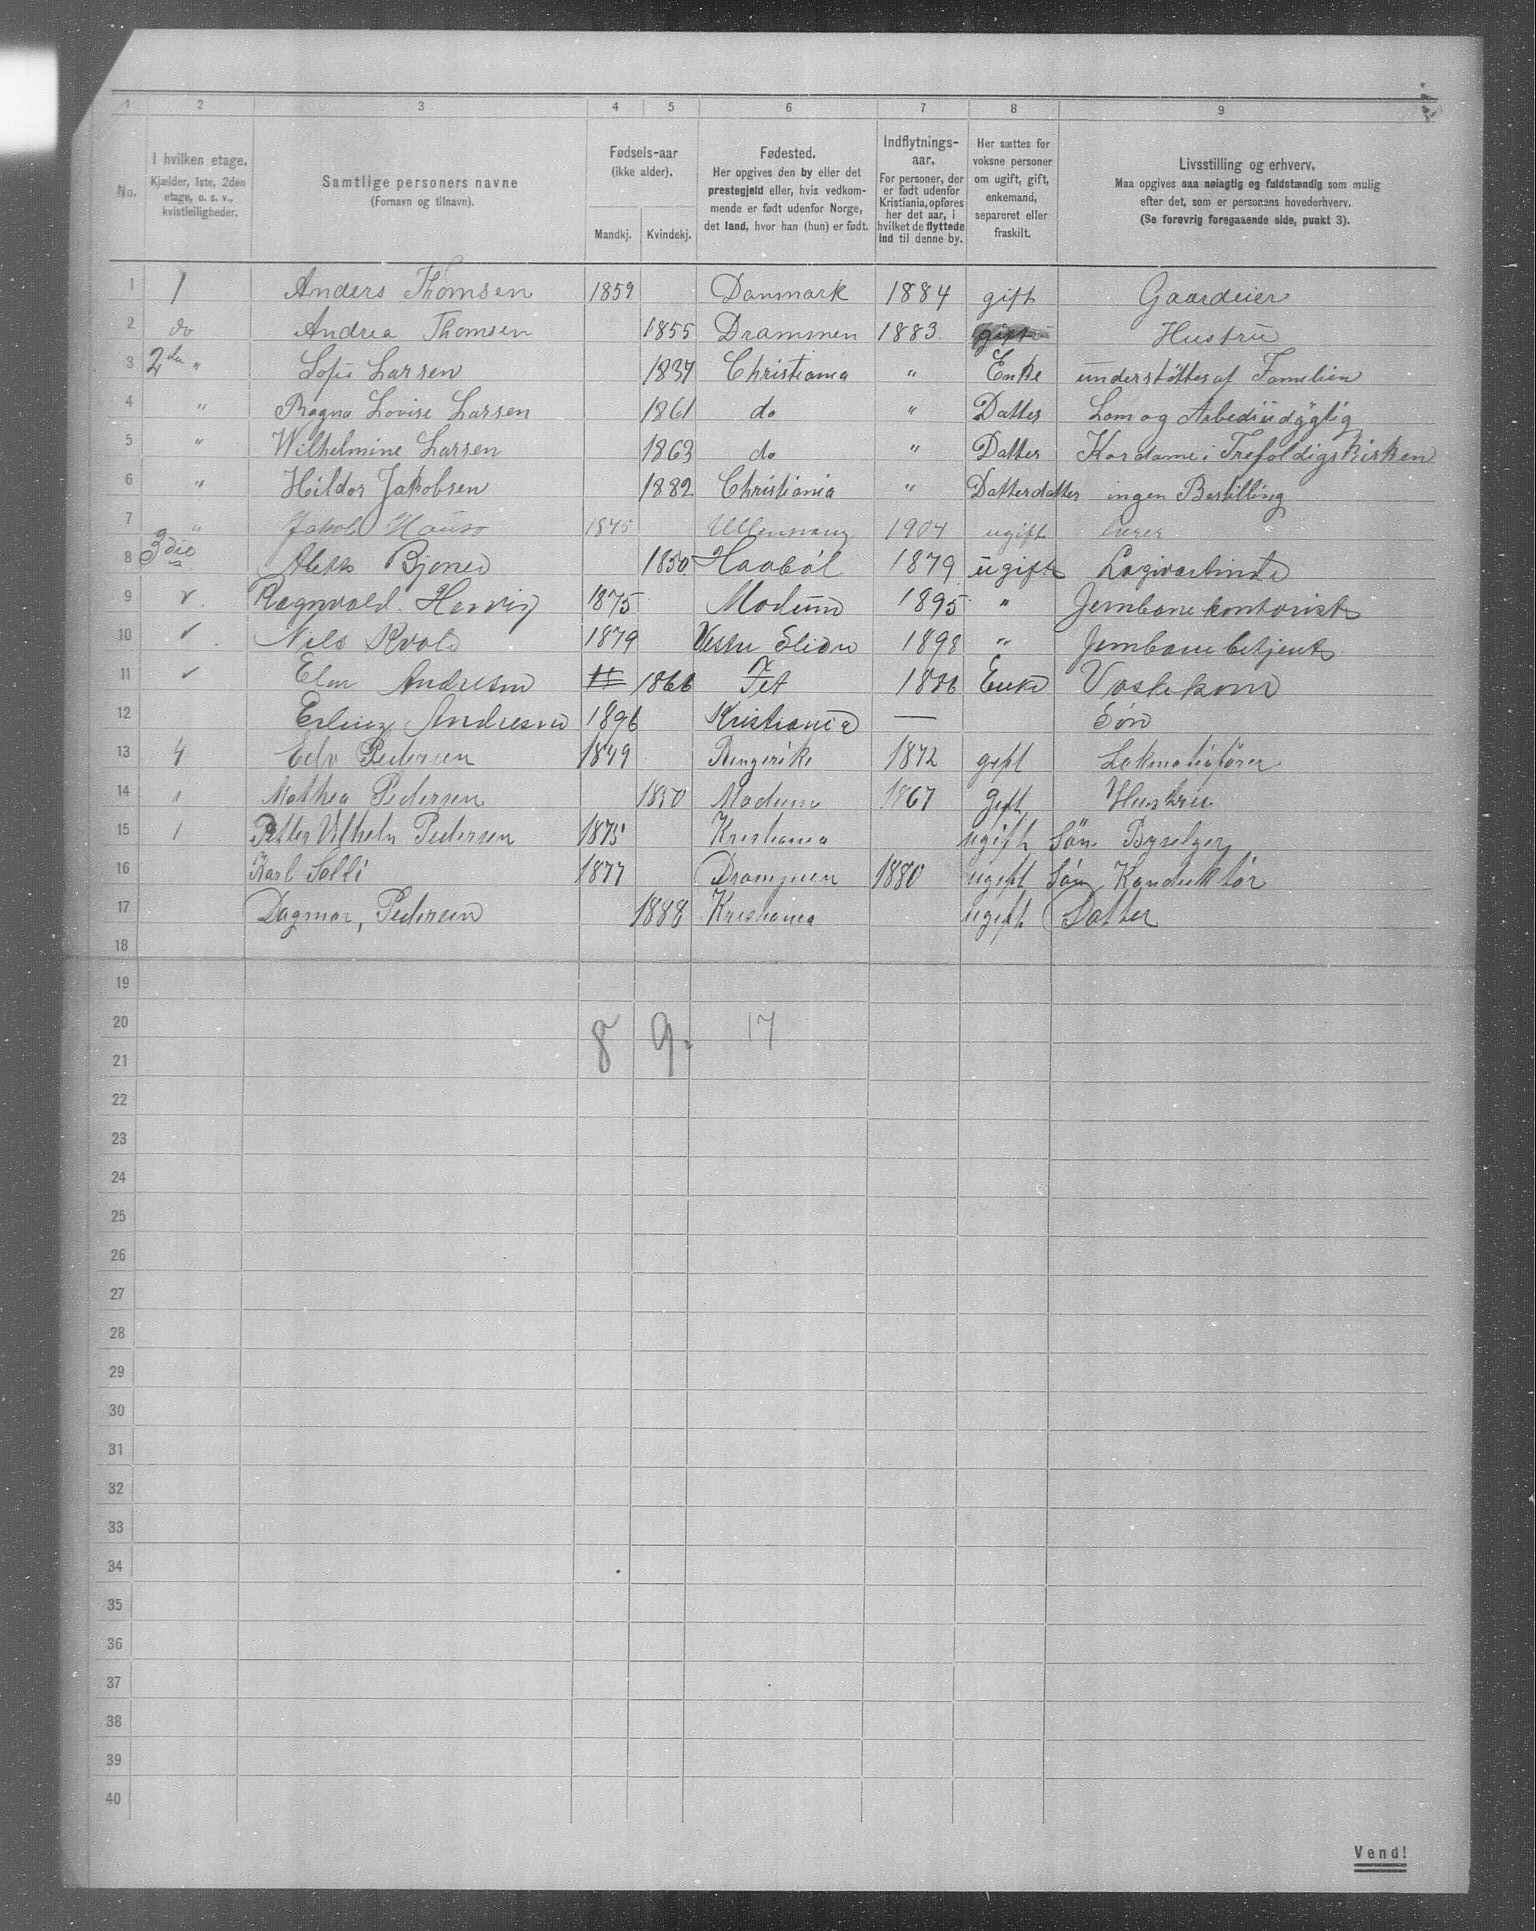 1 2 3 4 5 6 7 8 9
No.
I hvilken etage.
Kjælder, 1ste, 2den
etage, o. s. v.,
kvistleiligheder.
Samtlige personers navne
(Fornavn og tilnavn).
Fødsels-aar
(ikke alder).
Mandkj. Kvindekj.
Fødested.
Her opgives den by eller det
prestegjeld eller, hvis vedkom-
mende er født udenfor Norge,
det land, hvor han (hun) er født.
Indflytnings-
aar.
For personer, der
er født udenfor
Kristiania, opføres
her det aar, i
hvilket de flyttede
ind til denne by.
Her sættes for
voksne personer
om ugift, gift,
enkemand,
separeret eller
fraskilt.
Livsstilling og erhverv.
Maa opgives saa nøiagtig og fuldstændig som mulig
efter det, som er personens hovederhverv.
(Se forøvrig foregaaende side, punkt 3).
1 1 Anders Thomsen 1859 Danmark 1884 gift Gaardeier
2 do Andrea Thomsen 1855 Drammen 1883 Hustru
3 2den " Sofie Larsen 1837 Christiania " Enke understøttes af Familien
4 " Ragna Lovise Larsen 1861 do " Datter Lam og Arbeidsudygtig
5 " Wilhelmine Larsen 1863 do " Datter Kordame i Trefoldigskirken
6 " Hildor Jakobsen 1882 Christiania " Datterdatter ingen Bestilling
7 " Jakob 1845 Ullensvang 1904 ugift
8 3die Bjoner 1850 Haabøl 1879 ugift Logivertinde
9 " Ragnvald 1875 Modum 1895 " Jernbanekontorist
10 " Nils Kvale 1879 Vestre Slidre 1898 " Jernbanebetjent
11 " Elen Andresen 1866 Fet 1886 Enke Vaskekone
12 Erling Andresen 1896 Kristiania — Søn
13 4 Edv Pedersen 1849 Ringerike 1872 gift Lokmotivfører
14 " Mathea Pedersen 1850 Modum 1867 Gift Hustru
15 " Petter Vilhelm Pedersen 1875 Kristiania ugift Søn Byselger
16 Karl Solli 1877 Drammen 1880 ugift Søn Konduktør
17 Dagmar, Pedersen 1888 Kristiania ugift Datter
18
19
20 8 9. 17
21
22
23
24
25
26
27
28
29
30
31
32
33
34
35
36
37
38
39
40
Vend!